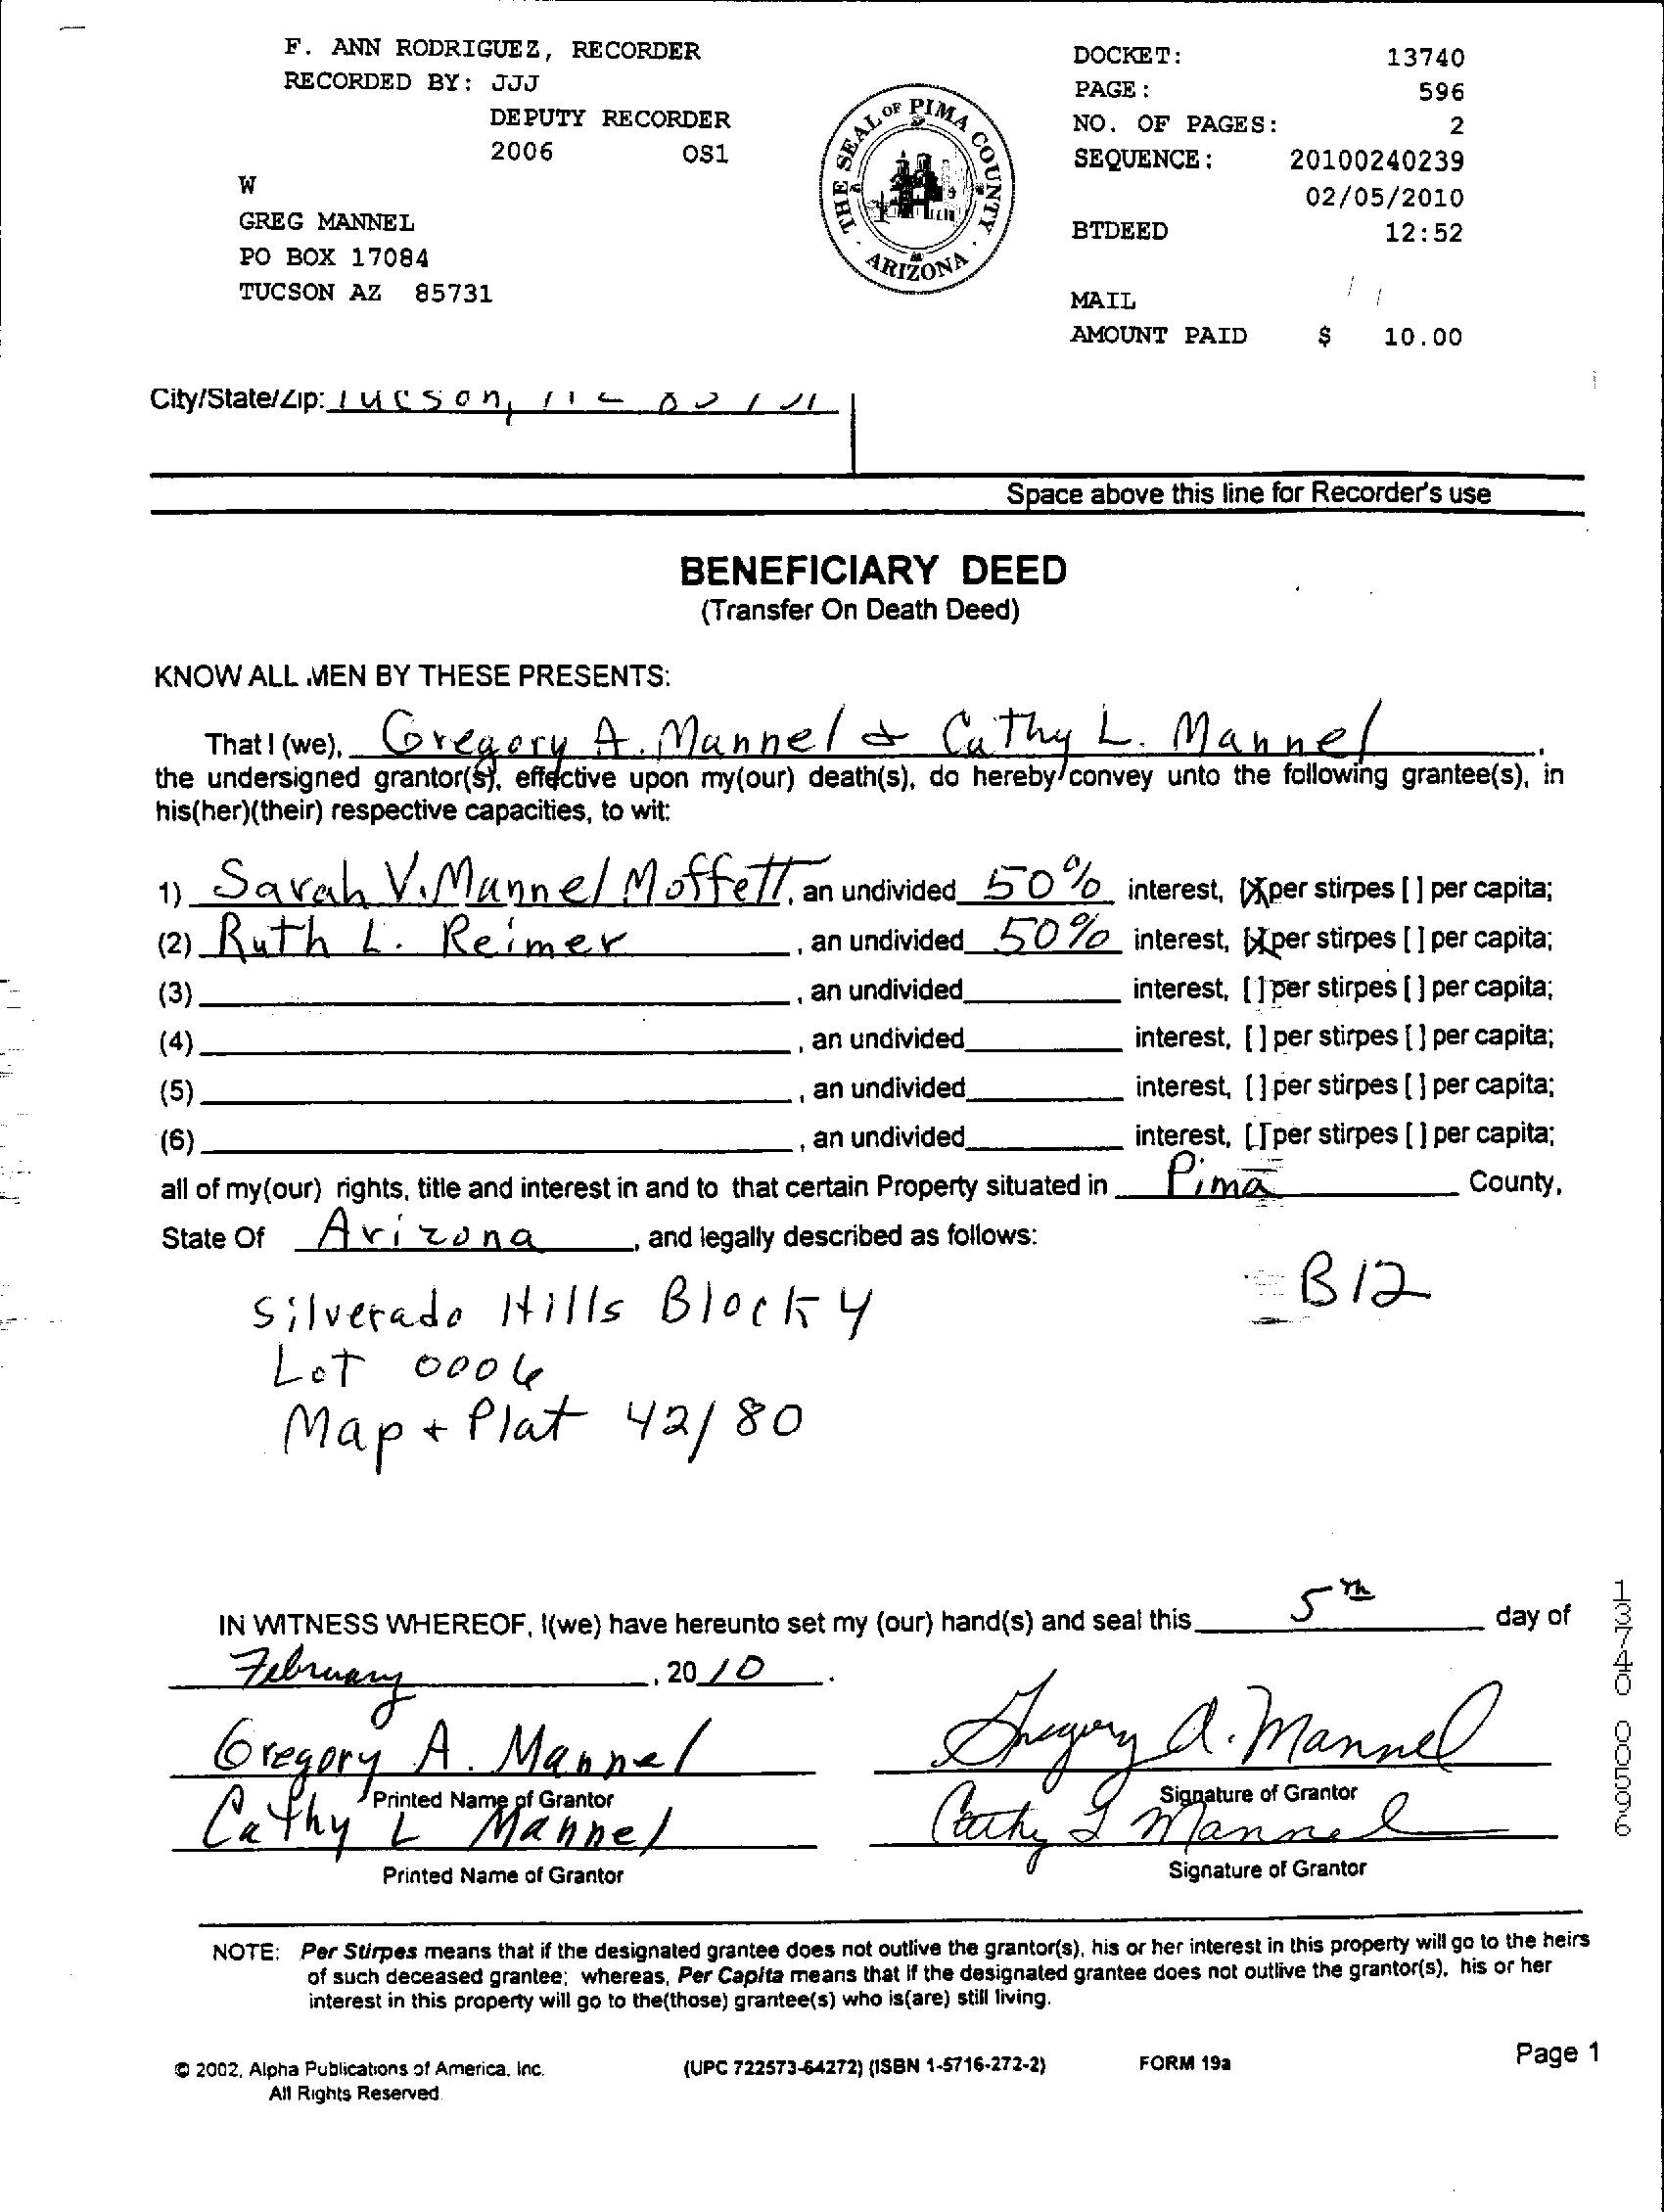 F. ANN RODRIGUEZ, RECORDER
RECORDED BY: JJJ
DEPUTY RECORDER
2006 OS1
W
GREG MANNEL
PO BOX 17084
TUCSON AZ 85731
THE SEAL OF PIMA COUNTY
ARIZONA
DOCKET: 13740
PAGE: 596
NO. OF PAGES: 2
SEQUENCE: 20100240239
02/05/2010
BTDEED 12:52
MAIL
AMOUNT PAID $ 10.00
City/State/Zip: Tucson,
Space above this line for Recorder's use
BENEFICIARY DEED
(Transfer On Death Deed)
KNOW ALL MEN BY THESE PRESENTS:
That I (we), Gregory A. Mannel & Cathy L. Mannel,
the undersigned grantor(s), effective upon my(our) death(s), do hereby convey unto the following grantee(s), in
his(her)(their) respective capacities, to wit:
1) Sarah V. Mannel Moffett, an undivided 50% interest, [X] per stirpes [ ] per capita;
(2) Ruth L. Reimer, an undivided 50% interest, [X] per stirpes [ ] per capita;
(3) , an undivided interest, [ ] per stirpes [ ] per capita;
(4) , an undivided interest, [ ] per stirpes [ ] per capita;
(5) , an undivided interest, [ ] per stirpes [ ] per capita;
(6) , an undivided interest, [ ] per stirpes [ ] per capita;
all of my(our) rights, title and interest in and to that certain Property situated in Pima County,
State Of Arizona, and legally described as follows:
B12
Silverado Hills Block 4
Lot 0006
Map + Plat 42/80
IN WITNESS WHEREOF, I(we) have hereunto set my (our) hand(s) and seal this 5th day of
February, 20 10.
Gregory A. Mannel Gregory A. Mannel
Printed Name of Grantor Signature of Grantor
Cathy L Mannel Cathy L Mannel
Printed Name of Grantor Signature of Grantor
13740 00596
NOTE: Per Stirpes means that if the designated grantee does not outlive the grantor(s), his or her interest in this property will go to the heirs
of such deceased grantee; whereas, Per Capita means that if the designated grantee does not outlive the grantor(s), his or her
interest in this property will go to the(those) grantee(s) who is(are) still living.
© 2002, Alpha Publications of America, Inc. (UPC 722573-64272) (ISBN 1-5716-272-2) FORM 19a Page 1
All Rights Reserved.